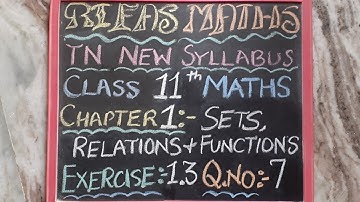 RIFAS MATHS
TN NEW SYLLABUS
CLASS 11th MATHS
CHAPTER 1:- SETS,
RELATIONS + FUNCTIONS
EXERCISE:-1.3 Q.NO:-7